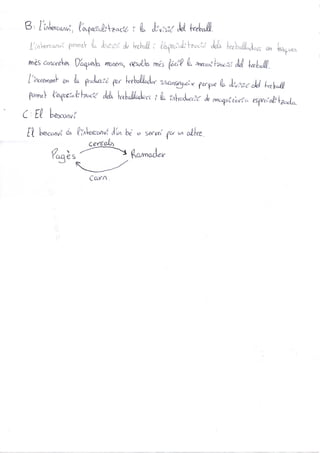 B. L'intercanvi, l'especialització i la divisió del treball.
L'intercanvi permet la divisió de treball i l'especialització dels treballadors en tasques
més concretes. D'aquesta manera, resulta més fàcil la monitorització del treball.
L'increment en la producció per treballador s'aconsegueix perque la divisió del treball
permet l'especialització dels treballadors i la introducció de maquinària especialitzada.
C. El bescanvi
El bescanvi és l'intercanvi d'un bé o servei per un altre.
cereals
Pagès Ramader
carn